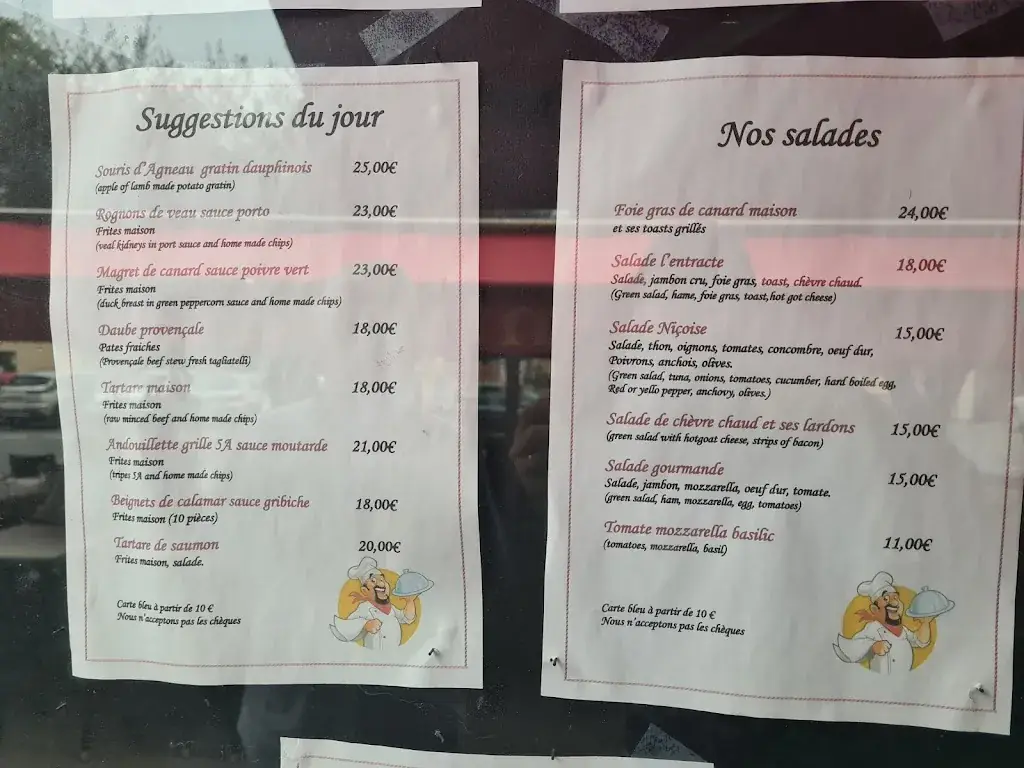 Suggestions du jour
Souris d'Agneau gratin dauphinois 25,00€
(apple of lamb made potato gratin)
Rognons de veau sauce porto 23,00€
Frites maison
(veal kidneys in port sauce and home made chips)
Magret de canard sauce poivre vert 23,00€
Frites maison
(duck breast in green peppercorn sauce and home made chips)
Daube provençale 18,00€
Pates fraiches
(Provençale beef stew fresh tagliatelli)
Tartare maison 18,00€
Frites maison
(raw minced beef and home made chips)
Andouillette grille 5A sauce moutarde 21,00€
Frites maison
(tripes 5A and home made chips)
Beignets de calamar sauce gribiche 18,00€
Frites maison (10 pièces)
Tartare de saumon 20,00€
Frites maison, salade.
Carte bleu à partir de 10 €
Nous n'acceptons pas les chèques
Nos salades
Foie gras de canard maison 24,00€
et ses toasts grillés
Salade l'entracte 18,00€
Salade, jambon cru, foie gras, toast, chèvre chaud.
(Green salad, hame, foie gras, toast,hot got cheese)
Salade Niçoise 15,00€
Salade, thon, oignons, tomates, concombre, oeuf dur,
Poivrons, anchois, olives.
(Green salad, tuna, onions, tomatoes, cucumber, hard boiled egg,
Red or yello pepper, anchovy, olives.)
Salade de chèvre chaud et ses lardons 15,00€
(green salad with hotgoat cheese, strips of bacon)
Salade gourmande 15,00€
Salade, jambon, mozzarella, oeuf dur, tomate.
(green salad, ham, mozzarella, egg, tomatoes)
Tomate mozzarella basilic 11,00€
(tomatoes, mozzarella, basil)
Carte bleu à partir de 10 €
Nous n'acceptons pas les chèques